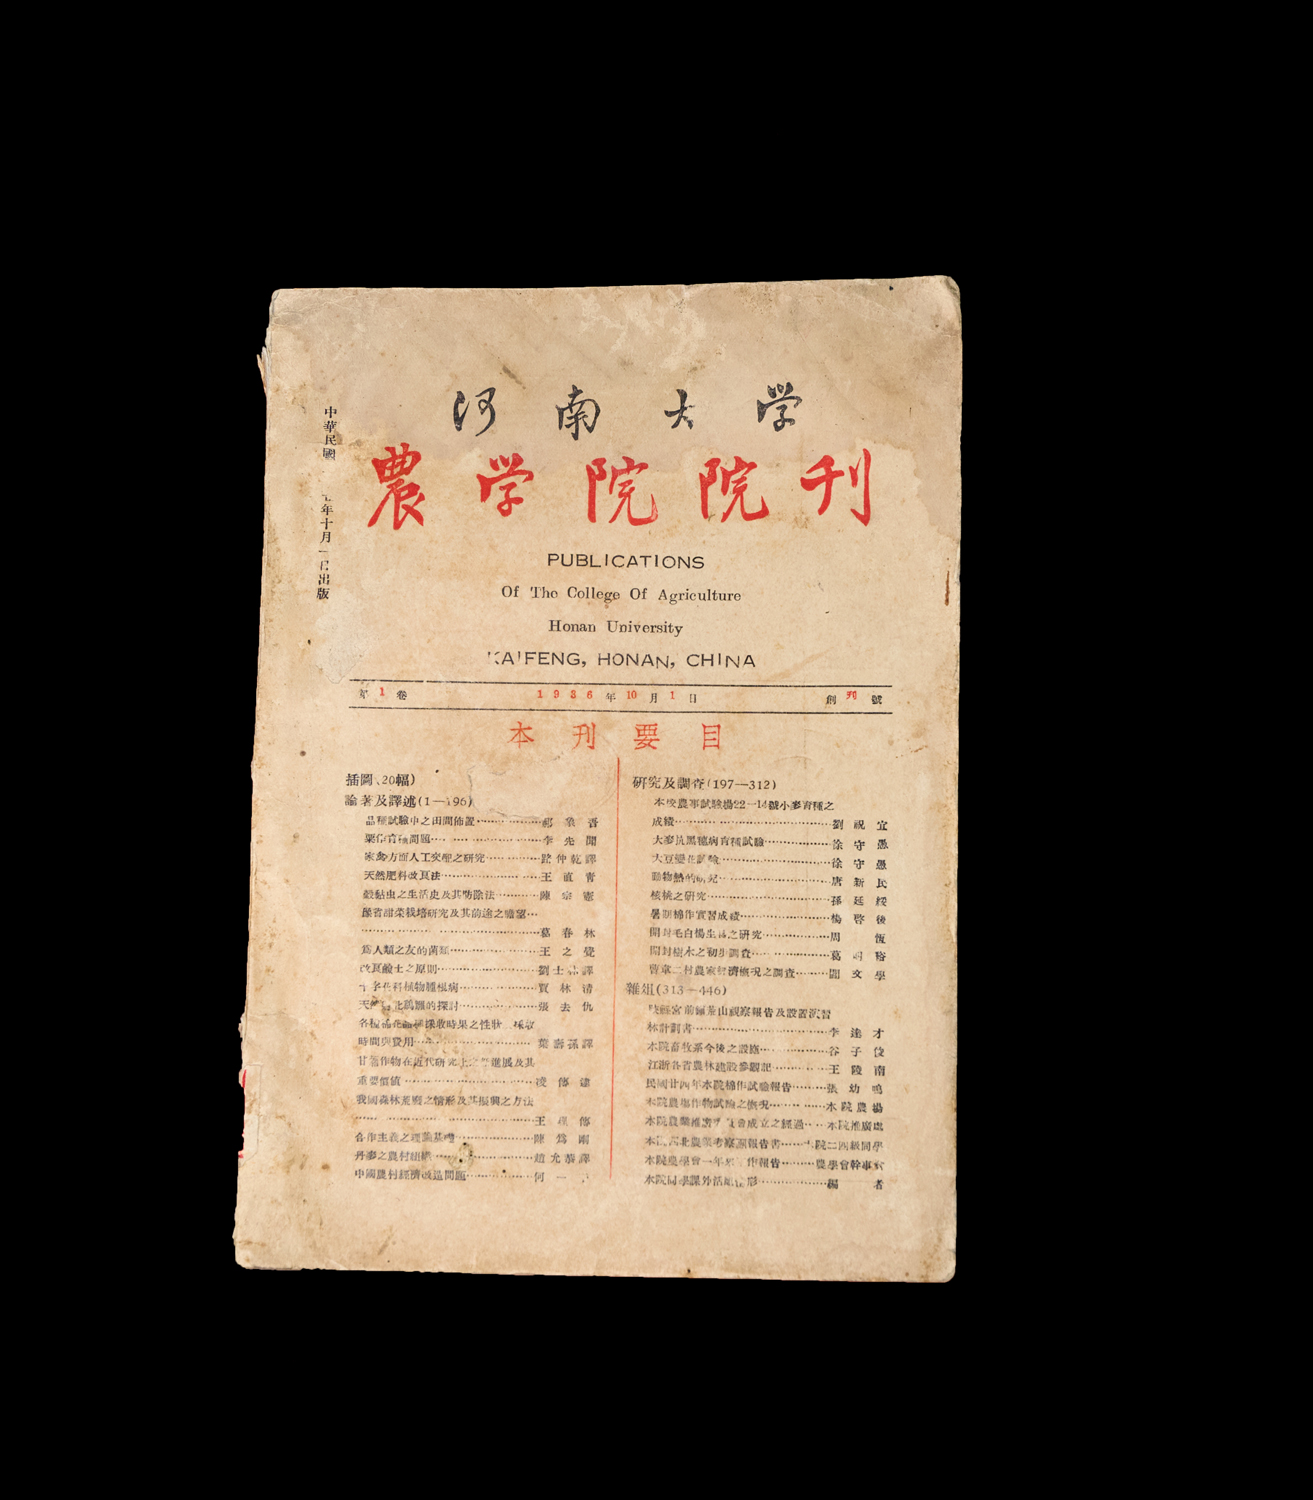 河南大学
農学院院刊
中華民國 年十月一日出版
PUBLICATIONS
Of The College Of Agriculture
Honan University
KAIFENG, HONAN, CHINA
第1卷 1936年10月1日 創刊號
本刊要目
插圖(20幅)
論著及譯述(1—196)
品種試驗中之田間佈置 郝象吾
粟作育種問題 李先聞
家禽方面人工交配之研究 路仲乾譯
天然肥料改良法 王直青
穀黏虫之生活史及其防除法 陳宗憲
豫省甜菜栽培研究及其前途之瞻望
葛春林
爲人類之友的菌類 王之覺
改良鹼土之原則 劉士 譯
十字花科植物腫根病 賈林清
天然 化鷄雛的探討 張去仇
各種棉花品種採收時果之性狀 採收
時間與費用 葉壽孫譯
甘藷作物在近代研究上之 進展及其
重要價値 凌傳建
我國森林荒廢之情形及其振興之方法
王 傳
合作主義之理論基礎 陳爲剛
丹麥之農村組織 趙允恭譯
中國農村經濟改造問題 何一
研究及調查(197—312)
本校農事試驗場22—14號小麥育種之
成績 劉祝宜
大麥抗黑穗病育種試驗 徐守愚
大豆變花試驗 徐守愚
動物熱的研究 唐新民
核桃之研究 孫延綬
暑期棉作實習成績 楊啓後
開封毛白楊生長之研究 周恆
開封樹木之初步調查 葛明裕
曹軍二村農家經濟概況之調查 閻文學
雜俎(313—446)
陝 宮前 墓山視察報告及設置演習
林計劃書 李達才
本院畜牧系今後之設施 谷子俊
江浙各省農林建設參觀記 王陵南
民國廿四年本院棉作試驗報告 張幼鳴
本院農場作物試驗之概況 本院農場
本院農業推廣 會成立之經過 本院推廣處
本 西北農業考察團報告書 本院二四級同學
本院農學會一年 作報告 農學會幹事會
本院同學課外活動情形 編者